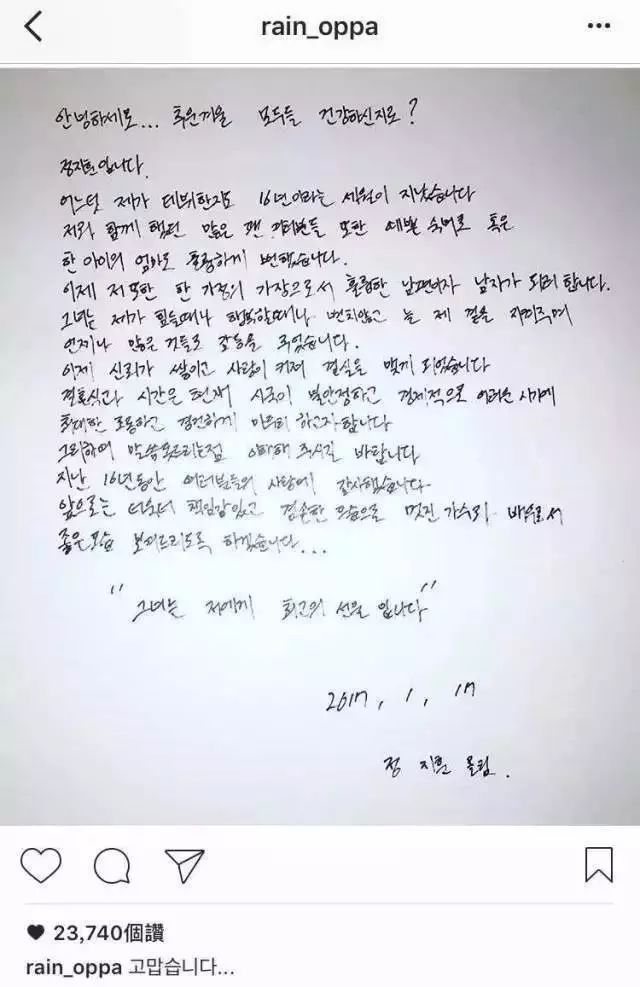 rain_oppa
안녕하세요... 추운겨울 모두들 건강하신지요?
정지훈입니다.
어느덧 제가 데뷔한지도 16년이라는 세월이 지났습니다
저와 함께 했던 많은 팬 여러분들 또한 예쁜 숙녀로 혹은
한 아이의 엄마로 훌륭하게 변했습니다.
이제 저 또한 한 가정의 가장으로서 훌륭한 남편이자 남자가 되려 합니다.
그녀는 제가 힘들때나 행복할때나 변치않고 늘 제 곁을 지켜주며
언제나 많은 것들로 감동을 주었습니다.
이제 신뢰가 쌓이고 사랑이 커져 결실을 맺게 되었습니다
결혼식과 시간은 현재 시국이 불안정하고 경제적으로 어려운 시기에
최대한 조용하고 경건하게 마무리 하고자합니다
그리하여 말씀못드리는점 이해해 주시길 바랍니다
지난 16년동안 여러분들의 사랑에 감사했습니다
앞으로는 더욱더 책임감있고 겸손한 모습으로 멋진 가수와 배우로서
좋은모습 보여드리도록 하겠습니다...
"그녀는 저에게 최고의 선물 입니다"
2017, 1, 17
정 지훈 올림.
23,740個讚
rain_oppa 고맙습니다...